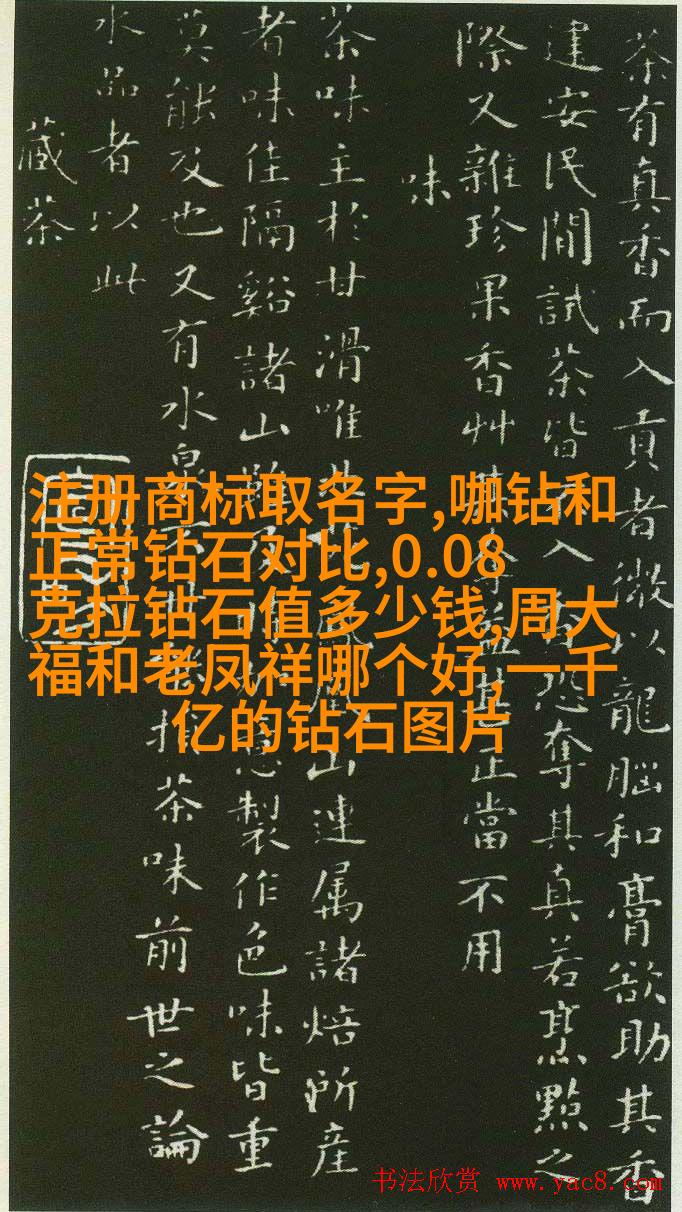 茶有真香而入貢者微以龍腦和膏欲助其香
建安民間試茶皆不入香恐奪其真若烹點之
際又雜珍果香艸其奪益甚正當不用
味
茶味主於甘滑唯北苑鳳凰山連属諸焙所產
者味佳隔谿諸山雖及時加意製作色味皆重
莫能及也又有水泉不甘能損茶味前世之論
水品者以此
藏茶
注册商标取名字,咖钻和
正常钻石对比,0.08
克拉钻石值多少钱,周大
福和老凤祥哪个好,一千
亿的钻石图片
书法欣赏 www.yac8.com